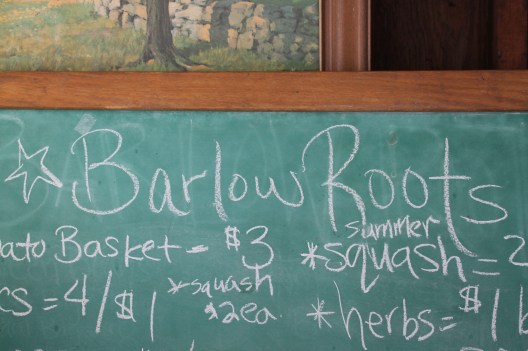 Barlow Roots
ato Basket - $3
cs = 4/$1
*squash
$2ea.
summer
*squash = 2
*herbs = $1 b